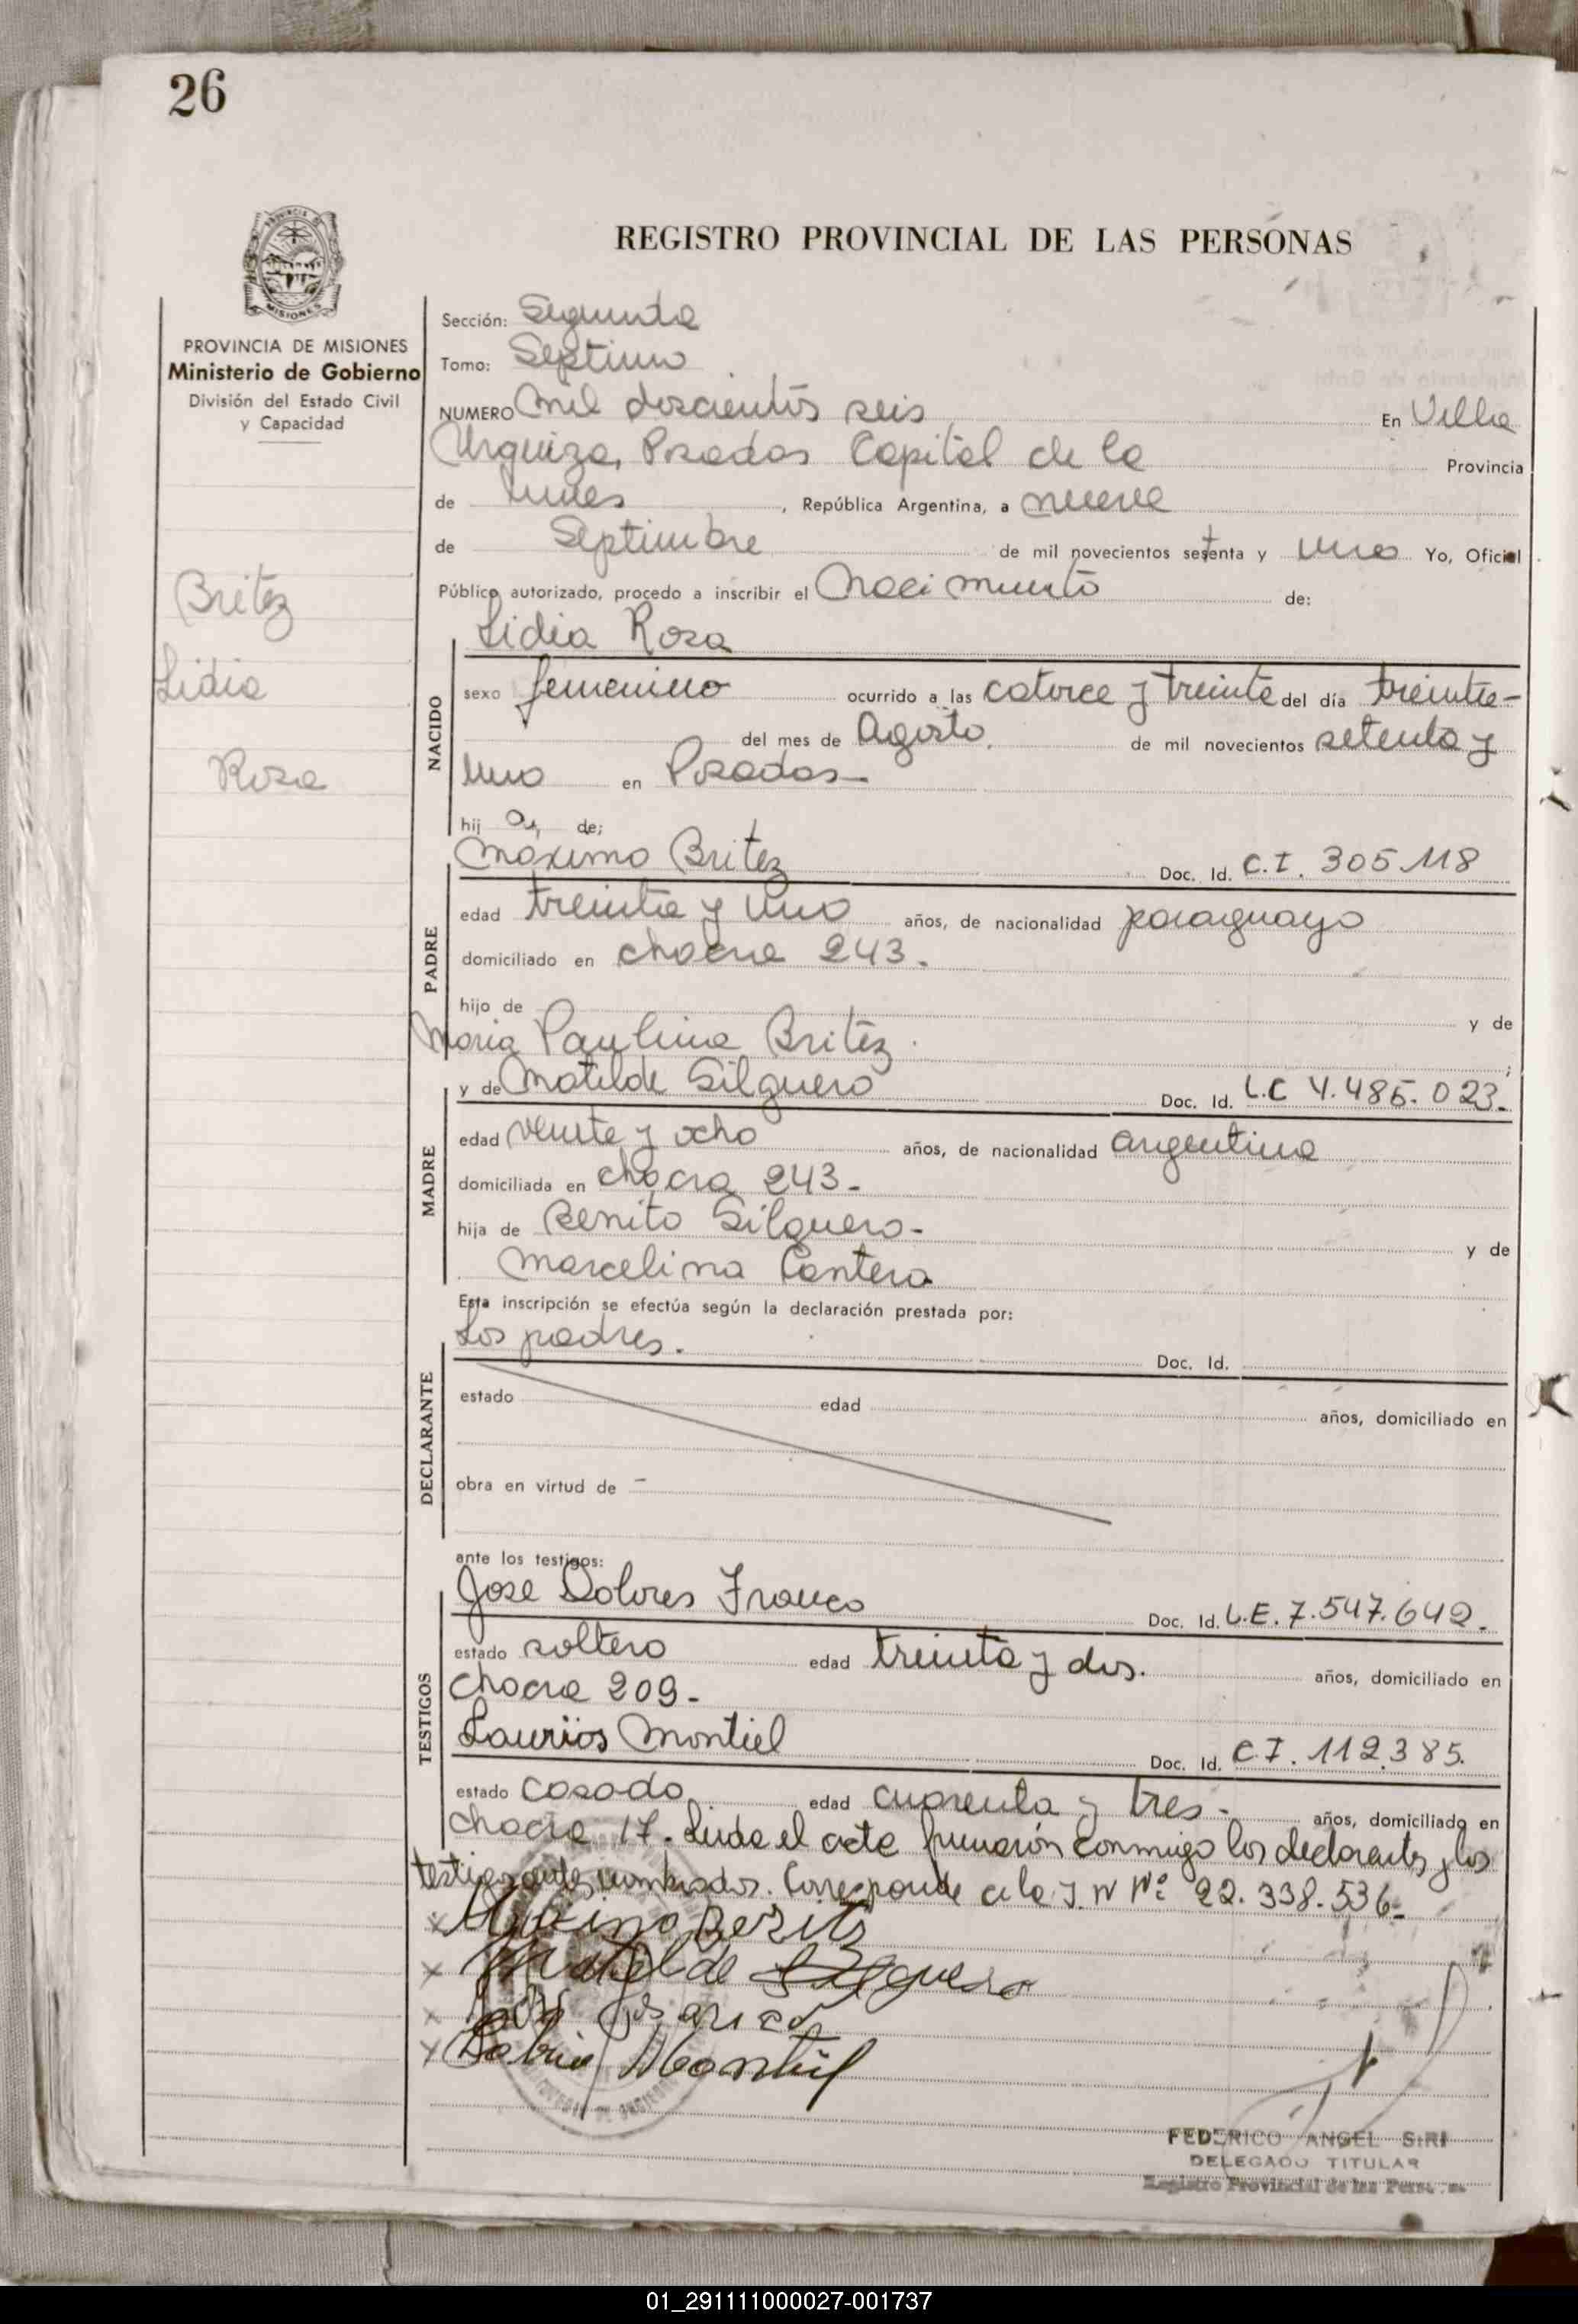 26
PROVINCIA DE
MISIONES
REGISTRO PROVINCIAL DE LAS PERSONAS
PROVINCIA DE MISIONES
Ministerio de Gobierno
División del Estado Civil
y Capacidad
Britez
Lidia
Rosa
Sección: Segunda
Tomo: Septimo
NUMERO mil doscientos seis En Villa
Urquiza, Posadas Capital de la Provincia
de , República Argentina, a nueve
de Septiembre de mil novecientos setenta y uno Yo, Oficial
Público autorizado, procedo a inscribir el Nacimiento de:
Lidia Rosa
NACIDO
sexo femenino ocurrido a las catorce y treinta del día treinta-
del mes de Agosto, de mil novecientos setenta y
uno en Posadas-
hij a, de;
Máximo Britez Doc. Id. C.I. 305.118
PADRE
edad treinta y uno años, de nacionalidad paraguayo
domiciliado en chacra 243.
hijo de y de
Maria Paulina Britez.
y de Matilde Silguero Doc. Id. L.C 4.485.023.-
MADRE
edad veinte y ocho años, de nacionalidad argentina
domiciliada en chacra 243-
hija de Benito Silguero- y de
Marcelina Cantero
Esta inscripción se efectúa según la declaración prestada por:
Los padres. Doc. Id.
DECLARANTE
estado edad años, domiciliado en
obra en virtud de -
ante los testigos:
Jose Dolores Franco Doc. Id. L.E. 7.547.642.-
TESTIGOS
estado soltero edad treinta y dos. años, domiciliado en
chacra 209-
Montiel Doc. Id. C.I. 112.385.
estado casado edad cuarenta y tres- años, domiciliado en
chacra 17. Leida el acta firmarón conmigo los declarantes y los
testigos antes nombrados. Corresponde a la I.N Nº 22.338.536-
x
x Matilde Silguero
x
x Montiel
FEDERICO ANGEL SIRI
DELEGADO TITULAR
Registro Provincial de las
01_291111000027-001737